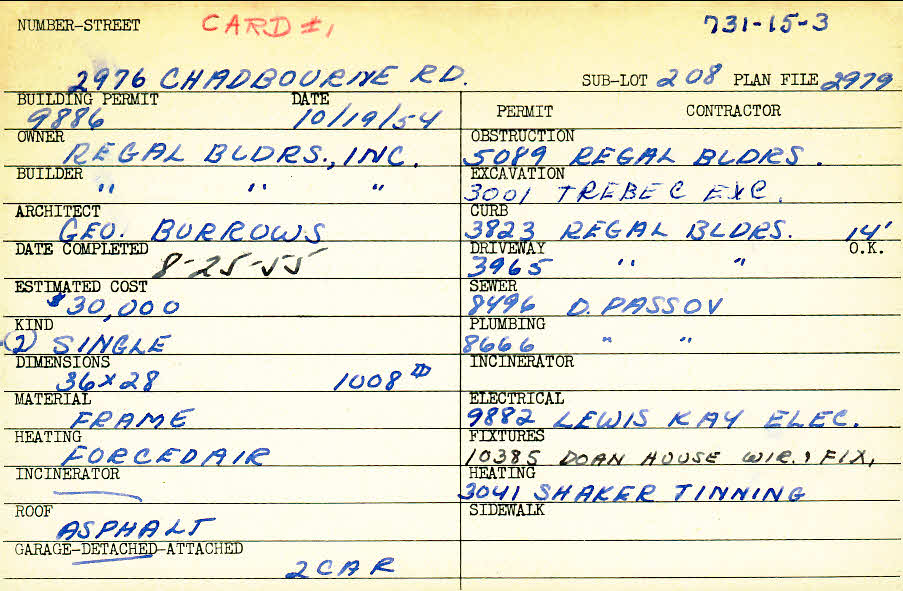 NUMBER-STREET CARD #1 731-15-3
2976 CHADBOURNE RD. SUB-LOT 208 PLAN FILE 2979
BUILDING PERMIT DATE
9886 10/19/54
OWNER
REGAL BLDRS., INC.
BUILDER
" " "
ARCHITECT
GEO. BURROWS
DATE COMPLETED
8-25-55
ESTIMATED COST
$30,000
KIND
(2) SINGLE
DIMENSIONS
36x28 1008
MATERIAL
FRAME
HEATING
FORCEDAIR
INCINERATOR
ROOF
ASPHALT
GARAGE-DETACHED-ATTACHED
2 CAR
PERMIT CONTRACTOR
OBSTRUCTION
5089 REGAL BLDRS.
EXCAVATION
3001 TREBEC EXC.
CURB
3823 REGAL BLDRS. 14'
DRIVEWAY O.K.
3965 " "
SEWER
8496 D. PASSOV
PLUMBING
8666 " "
INCINERATOR
ELECTRICAL
9882 LEWIS KAY ELEC.
FIXTURES
10385 DOAN HOUSE WIR. & FIX.
HEATING
3041 SHAKER TINNING
SIDEWALK